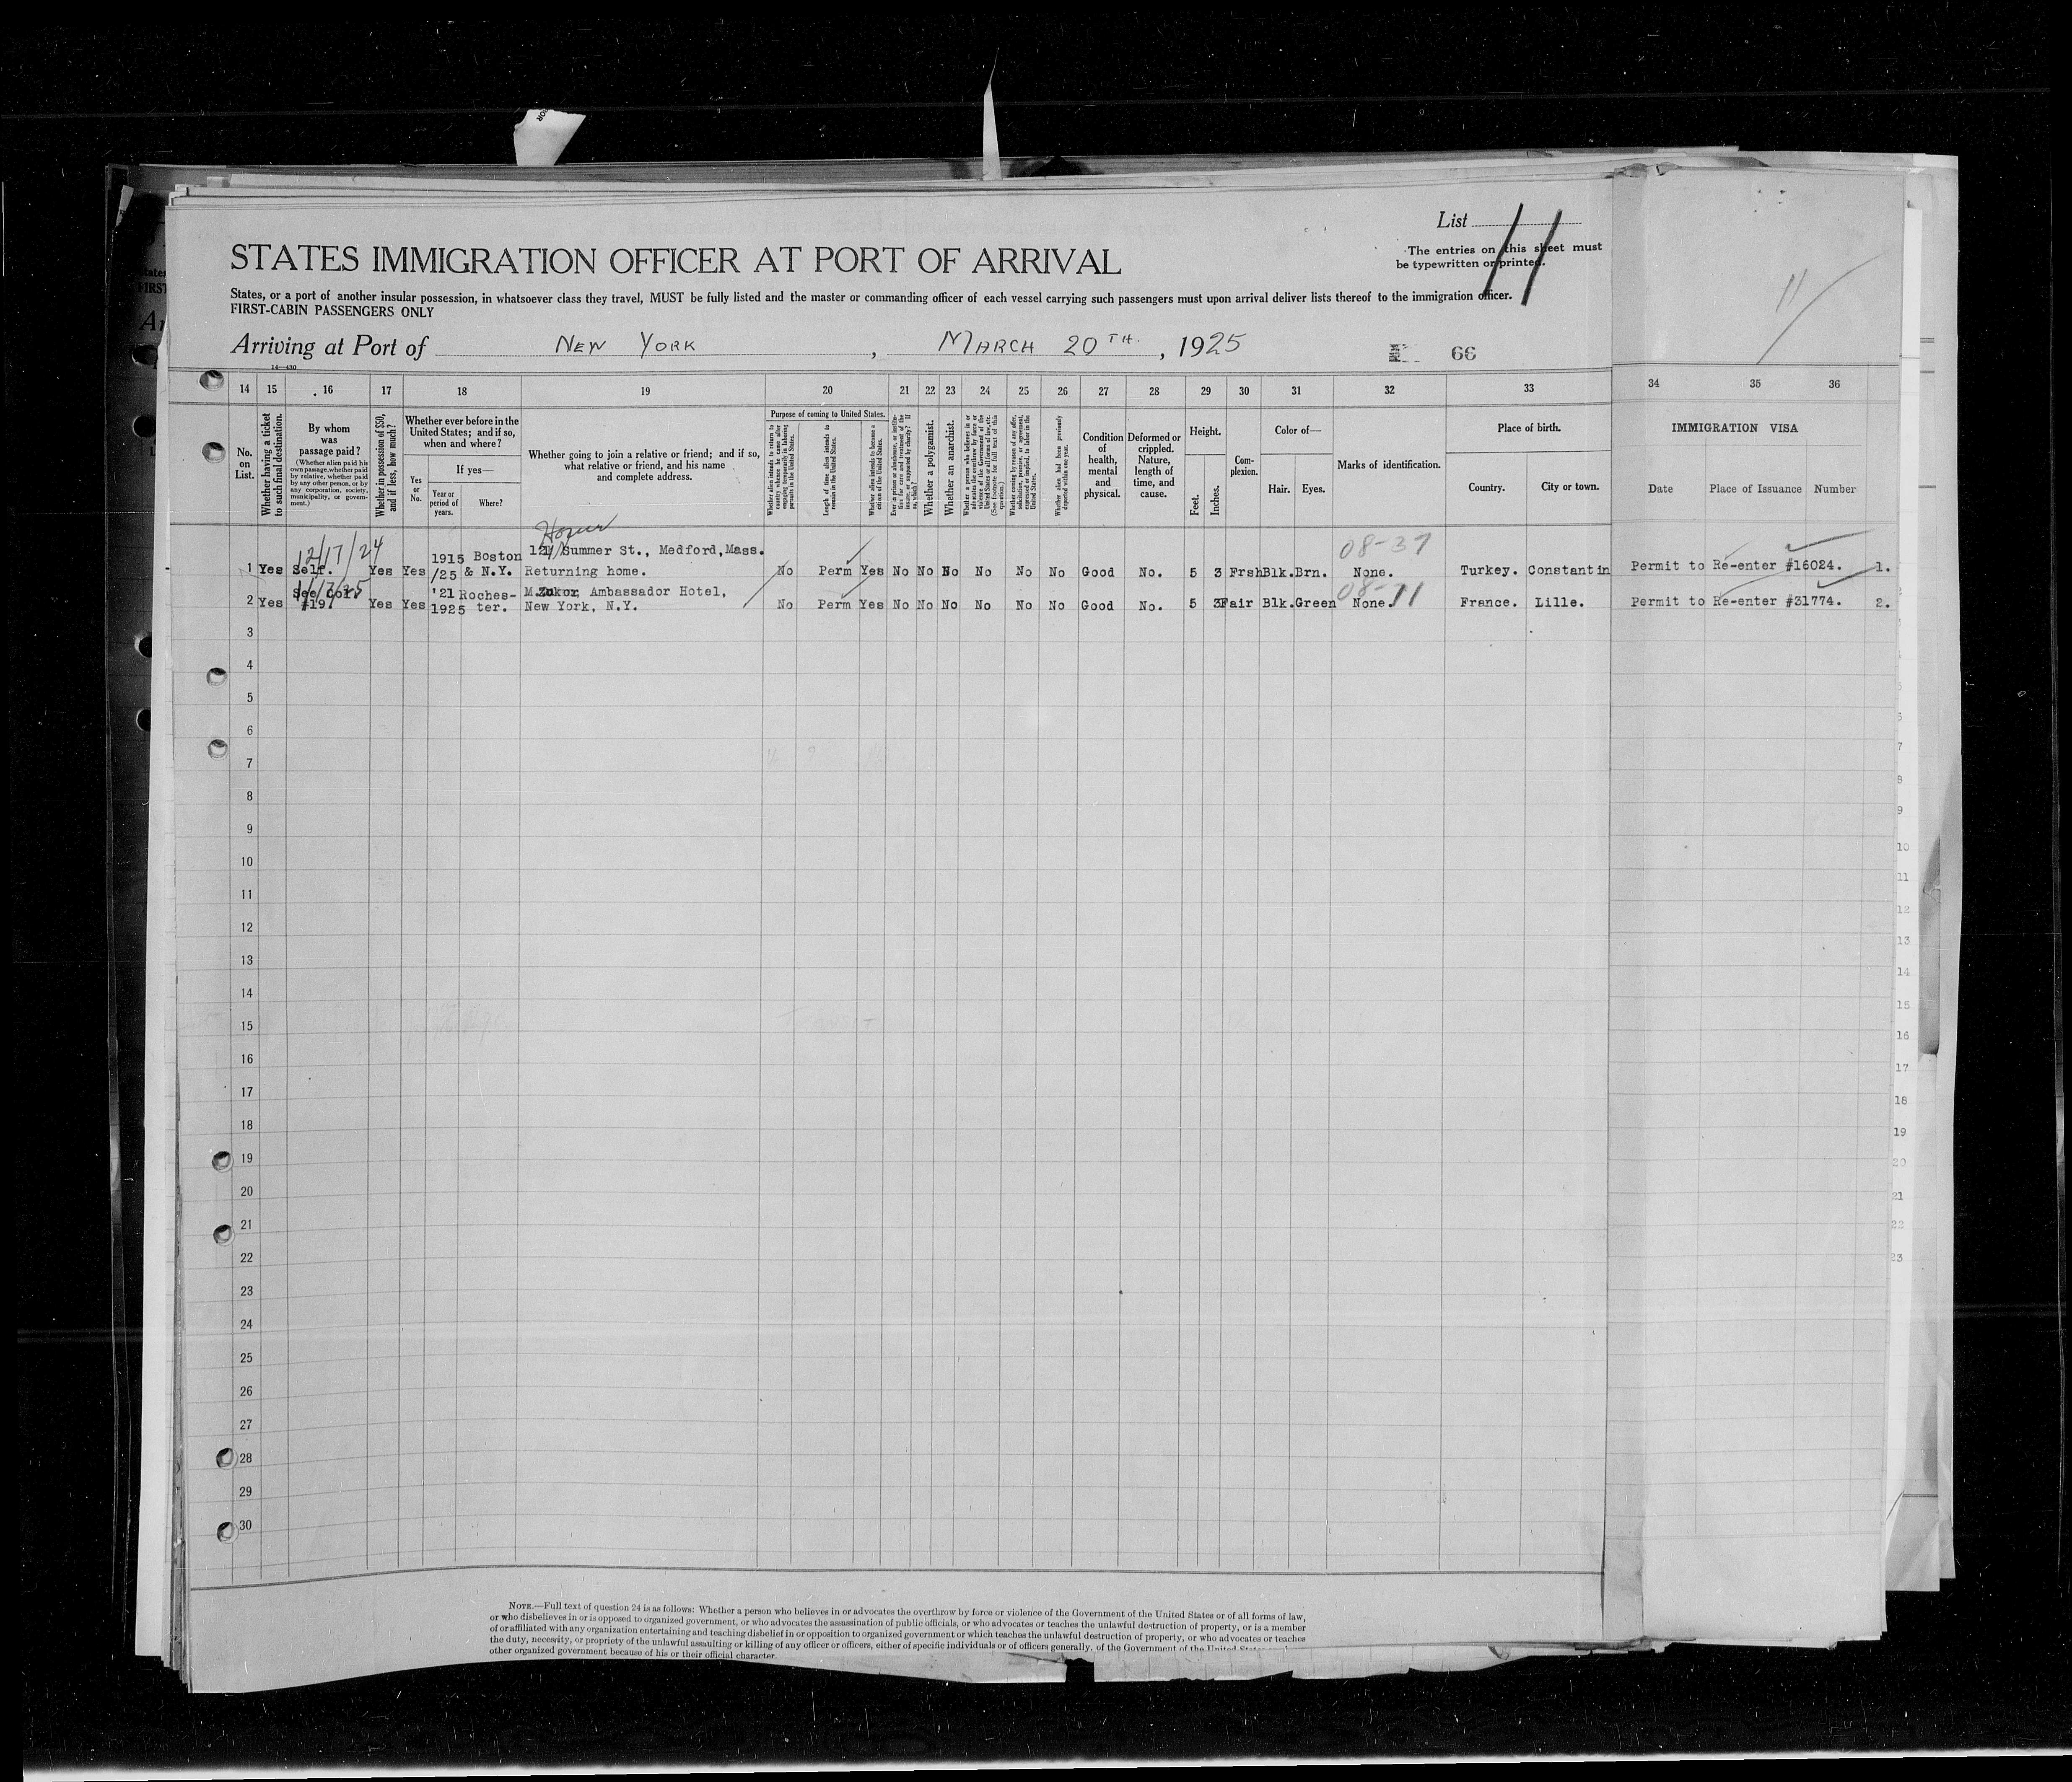 List 11
The entries on this sheet must
be typewritten or printed.
STATES IMMIGRATION OFFICER AT PORT OF ARRIVAL
States, or a port of another insular possession, in whatsoever class they travel, MUST be fully listed and the master or commanding officer of each vessel carrying such passengers must upon arrival deliver lists thereof to the immigration officer.
FIRST-CABIN PASSENGERS ONLY
Arriving at Port of NEW YORK, MARCH 20TH., 1925
66
11
14—430
14 15 16 17 18 19 20 21 22 23 24 25 26 27 28 29 30 31 32 33 34 35 36
No. on List.
Whether having a ticket to such final destination.
By whom was passage paid?
(Whether alien paid his own passage, whether paid by relative, whether paid by any other person, or by any corporation, society, municipality, or government.)
Whether in possession of $50, and if less, how much?
Whether ever before in the United States; and if so, when and where?
Yes or No.
If yes—
Year or period of years.
Where?
Whether going to join a relative or friend; and if so, what relative or friend, and his name and complete address.
Purpose of coming to United States.
Length of time alien intends to remain in the United States.
Whether alien intends to become a citizen of the United States.
Whether a polygamist.
Whether an anarchist.
Whether alien had been previously deported within one year.
Condition of health, mental and physical.
Deformed or crippled. Nature, length of time, and cause.
Height.
Feet.
Inches.
Complexion.
Color of—
Hair.
Eyes.
Marks of identification.
Place of birth.
Country.
City or town.
IMMIGRATION VISA
Date
Place of Issuance
Number
12/17/24
08-37
1915 Boston 121 Summer St., Medford, Mass.
1 Yes Self. Yes Yes /25 & N.Y. Returning home. No Perm Yes No No No No No No Good No. 5 3 Frsh Blk. Brn. None. Turkey. Constantin Permit to Re-enter #16024. 1.
See Col. '21 Roches- M.Zukor, Ambassador Hotel,
08-11
2 Yes #19. Yes Yes 1925 ter. New York, N.Y. No Perm Yes No No No No No No Good No. 5 3 Fair Blk. Green None. France. Lille. Permit to Re-enter #31774. 2.
3
4
5
6
7
8
9
10
11
12
13
14
15
16
17
18
19
20
21
22
23
24
25
26
27
28
29
30
NOTE.—Full text of question 24 is as follows: Whether a person who believes in or advocates the overthrow by force or violence of the Government of the United States or of all forms of law,
or who disbelieves in or is opposed to organized government, or who advocates the assassination of public officials, or who advocates or teaches the unlawful destruction of property, or is a member
of or affiliated with any organization entertaining and teaching disbelief in or opposition to organized government or which teaches the unlawful destruction of property, or who advocates or teaches
the duty, necessity, or propriety of the unlawful assaulting or killing of any officer or officers, either of specific individuals or of officers generally, of the Government of the United States
other organized government because of his or their official character.